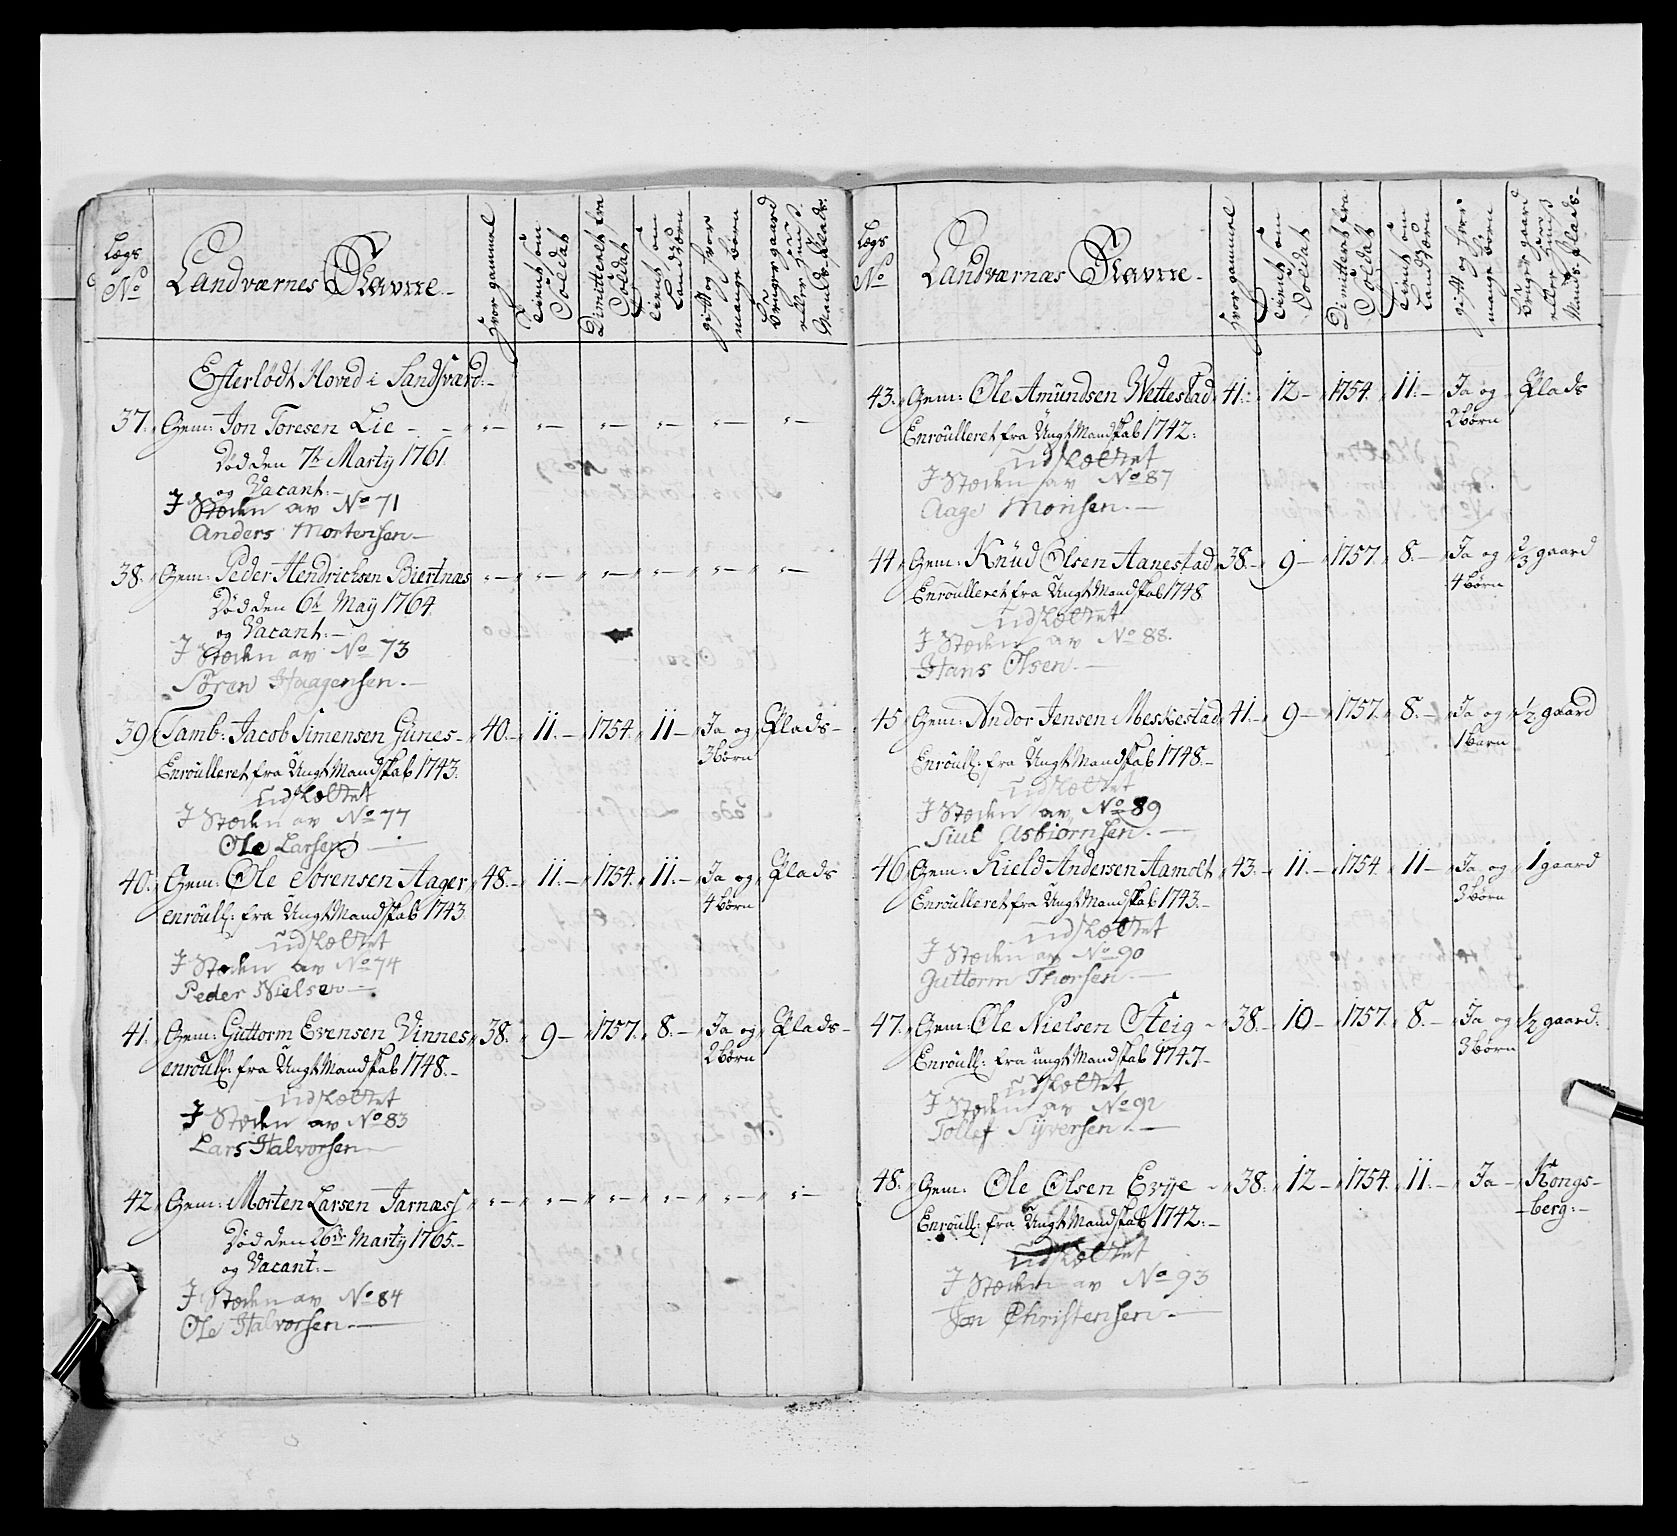 Lægs No
Landværnes Navne.-
Hvor gammel
Tient som Soldat
Dimitteret fra Soldat
Tient som Landværn
gift og hvor mange børn
Bruger gaard eller Huus Mands Plads.
Efterlødt Hoved i Sandsværd:-
37. Gem: Jon Toresen Lie - - " - " - " - " - " - " -
Død den 7de Martij 1761.
og Vacant:-
I Stæden av No 71
Anders Mortensen-
38. Gem: Peder Hendrichsen Biertnæs " - " - " - " - " - " -
Død den 6te Maij 1764.
og Vacant:-
I Stæden av No 73
Søren Haagensen.-
39 Tamb: Jacob Simensen Gunes- 40.- 11.- 1754. 11- Ja og Plads-
Enroulleret fra Ungt Mandskab 1743. 3 børn
udskættet
I Stæden av No 77
Ole Larsen -
40. Gem: Ole Sørensen Aager 48.- 11.- 1754. 11.- Ja og Plads
enroull: fra Ungt Mandskab 1743. 4 børn
udskættet
I Stæden av No 74
Peder Nielsen-
41. Gem: Guttorm Evensen Vinnes 38. 9- 1757. 8.- Ja og Plads-
enroull: fra Ungt Mandskab 1748.- 2 børn
udskættet
I Stæden av No 83
Lars Halvorsen-
42 Gem: Morten Larsen Jarnæss " - " - " - " - " - " -
Død den 26de Martij 1765.-
og Vacant:-
I Stæden av No 84
Ole Halvorsen.-
Lægs No
Landværnæs Navne-
Hvor gammel
Tient som Soldat
Dimitteret fra Soldat
Tient som Landværn
gift og hvor mange børn
Bruger gaard eller Huus Mands-plads-
43. Gem: Ole Amundsen Wettestad 41.- 12- 1754. 11.- Ja og Plads
Enroulleret fra Ungt Mandskab 1742: 2 børn
udskættet
I Stæden av No 87
Aage Monsen.-
44 Gem: Knud Olsen Aanestad 38.- 9- 1757. 8.- Ja og 2/3 gaard
Enroulleret fra Ungt Mandskab 1748. 4 børn
udskættet
I Stæden av No 88.
Hans Olsen.-
45 Gem: Andor Jensen Meskestad 41.- 9- 1757. 8.- Ja og 1/2 gaard
Enroull: fra Ungt Mandskab 1748.- 1 barn
udskættet
I Stæden av No 89
Siul Asbiørnsen.-
46 Gem: Kield Andersen Aamolt 43.- 11.- 1754 11- Ja og 1 gaard
Enroulleret fra Ungt Mandskab 1743.- 3 børn
udskættet
I Stæden av No 90
Guttorm Thorsen.-
47. Gem: Ole Nielsen Steig - 38.- 10- 1757. 8.- Ja og 1/2 gaard.
Enroull: fra ungt Mandskab 1747.- 3 børn
udskættet
I Stæden av No 92
Tollef Syversen.-
48. Gem: Ole Olsen Evye - 38. 12- 1754. 11.- Ja- Kongs-
Enroull: fra Ungt Mandskab 1742:- -berg:-
udskættet
I Stæden av No 93
Jon Christensen-